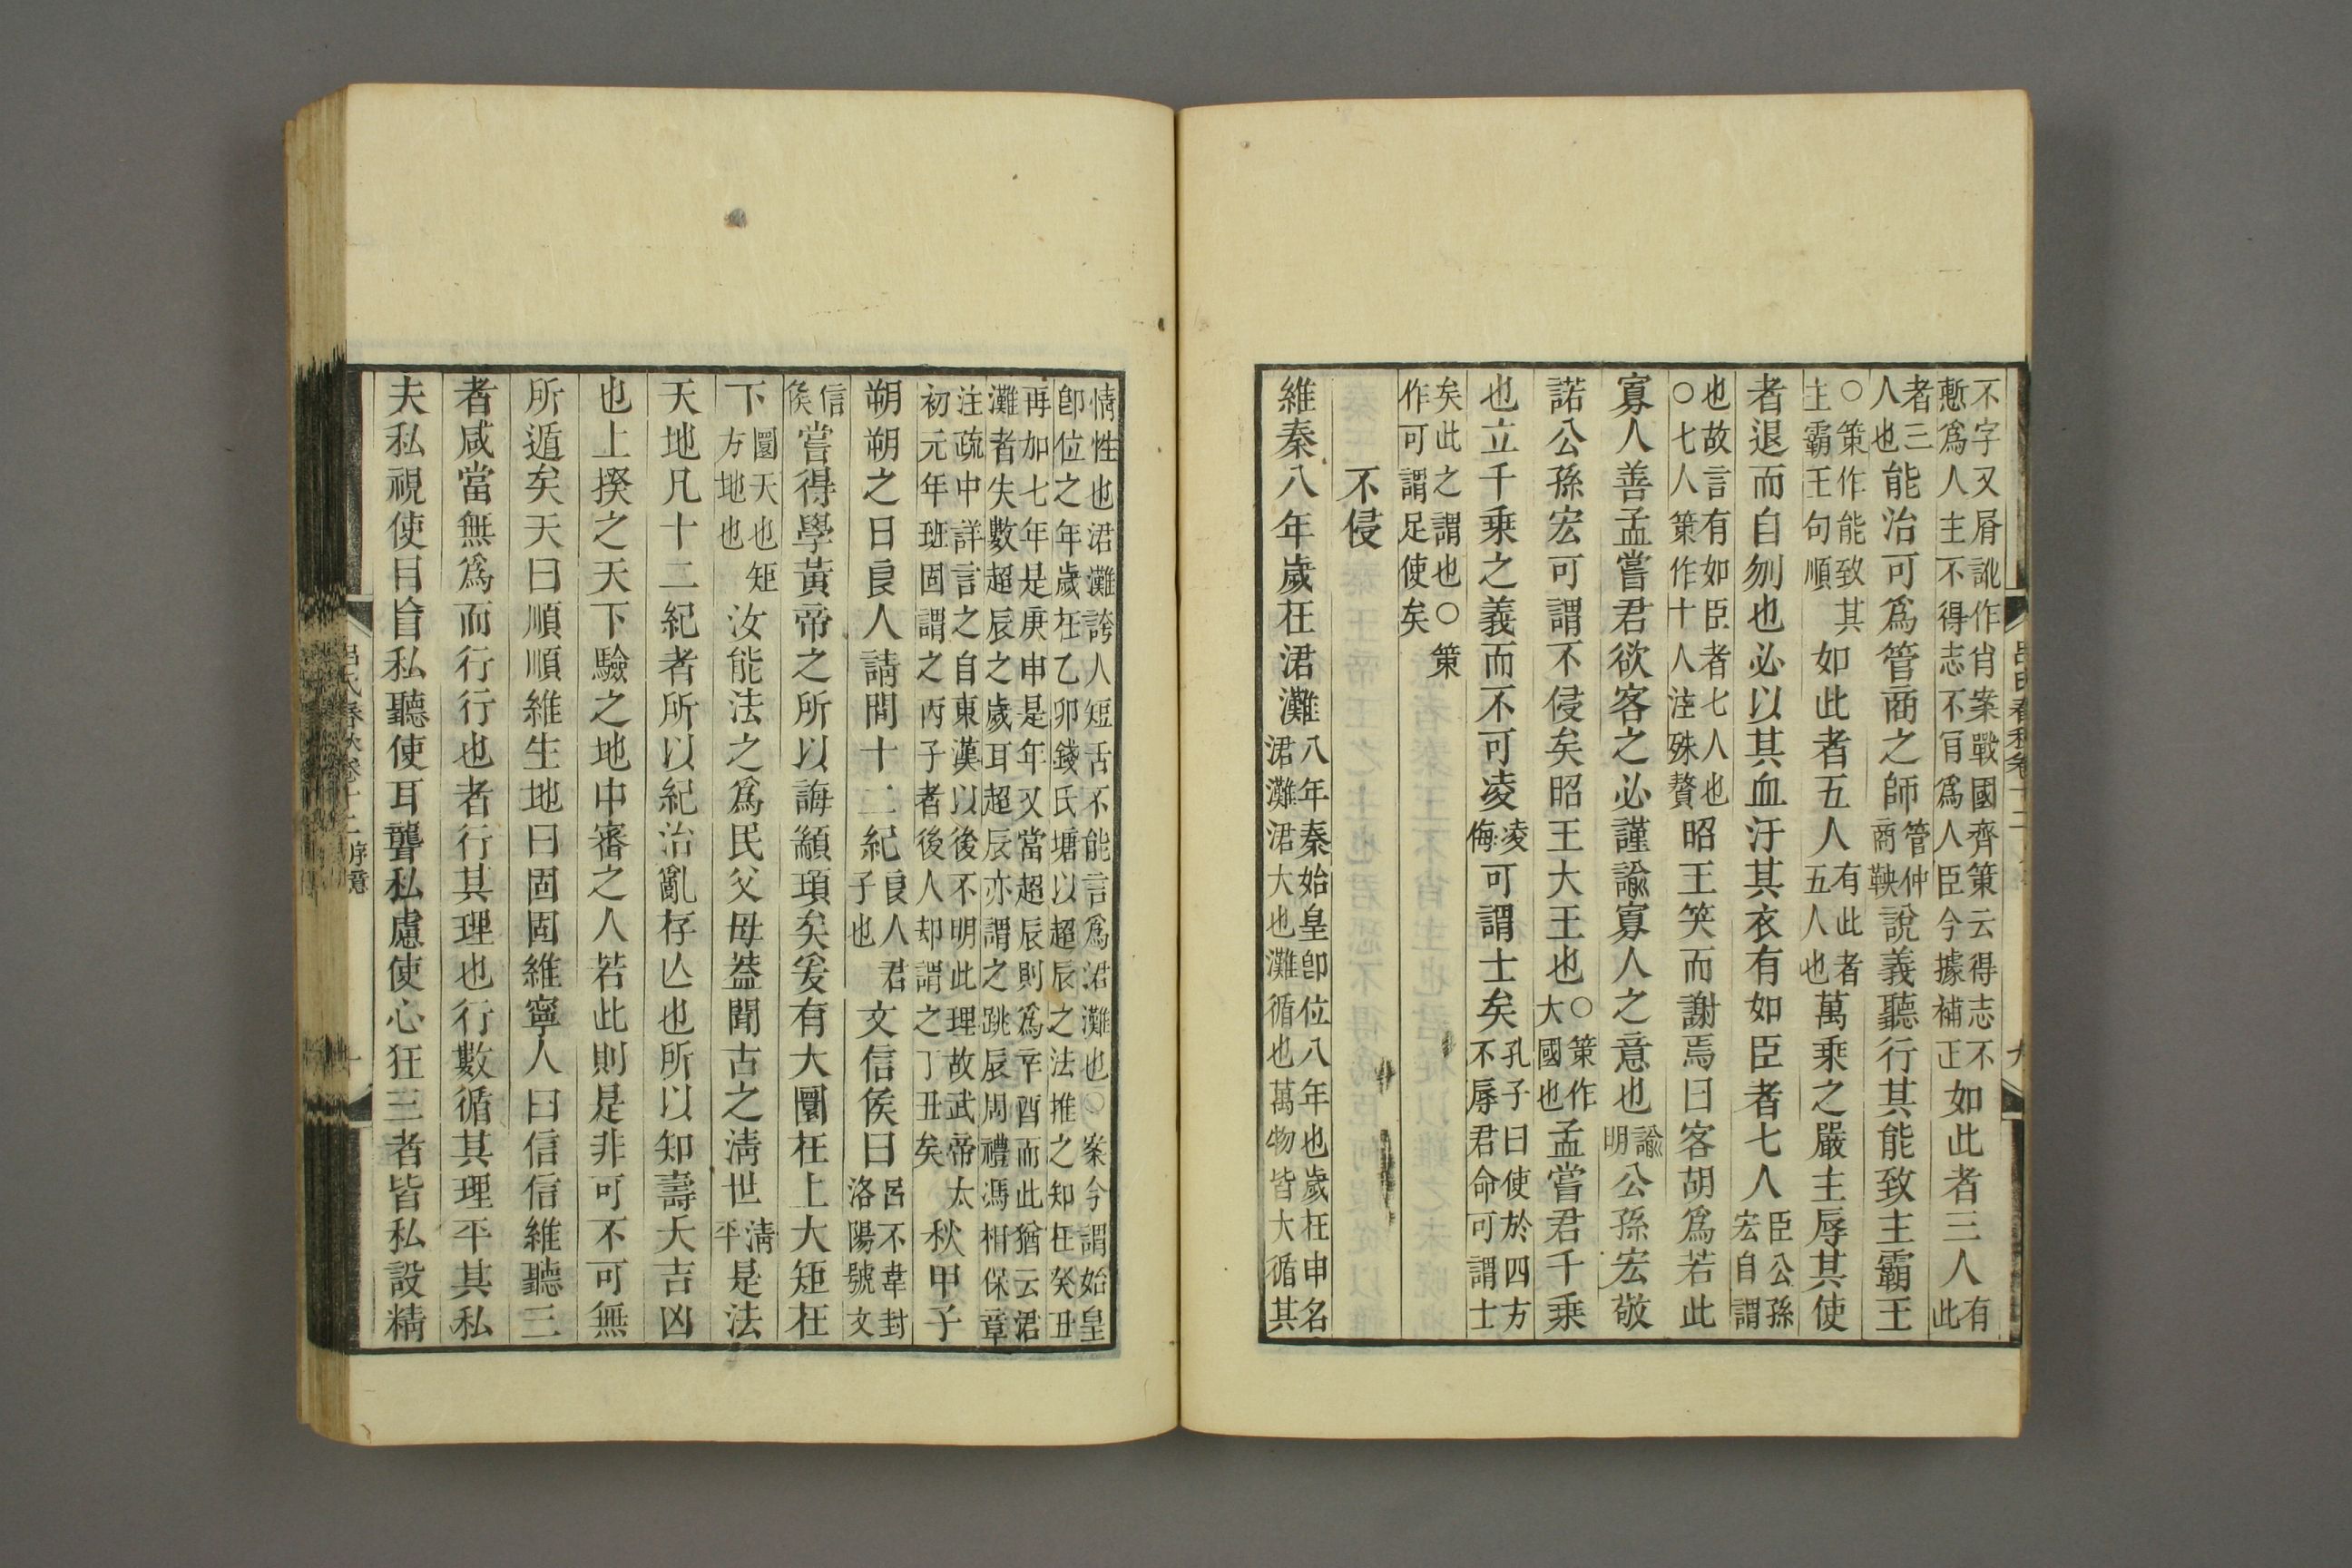 不字又屑訛作肖案戰國齊策云得志不
慙爲人主不得志不肯爲人臣今據補正如此者三人有此
者三人也能治可爲管商之師管仲商鞅說義聽行其能致主霸王
○策作能致其主霸王句順如此者五人有此者五人也萬乘之嚴主辱其使
者退而自刎也必以其血汙其衣有如臣者七人臣公孫宏自謂
也故言有如臣者七人也○七人策作十人注殊贅昭王笑而謝焉曰客胡爲若此
寡人善孟嘗君欲客之必謹諭寡人之意也諭明公孫宏敬
諾公孫宏可謂不侵矣昭王大王也○策作大國也孟嘗君千乘
也立千乘之義而不可凌凌侮可謂士矣孔子曰使於四方不辱君命可謂士
矣此之謂也○策作可謂足使矣
不侵
維秦八年歲在涒灘八年秦始皇卽位八年也歲在申名涒灘涒大也灘循也萬物皆大循其
情性也涒灘誇人短舌不能言爲涒灘也○案今謂始皇
卽位之年歲在乙卯錢氏塘以超辰之法推之知在癸丑
再加七年是庚申是年又當超辰則爲辛酉而此猶云涒
灘者失數超辰之歲耳超辰亦謂之跳辰周禮馮相保章
注疏中詳言之自東漢以後不明此理故武帝太
初元年班固謂之丙子者後人却謂之丁丑矣秋甲子
朔朔之日良人請問十二紀良人君子也文信侯曰呂不韋封洛陽號文
信侯嘗得學黃帝之所以誨顓頊矣爰有大圜在上大矩在
下圜天也矩方地也汝能法之爲民父母蓋聞古之淸世淸平是法
天地凡十二紀者所以紀治亂存亾也所以知壽夭吉凶
也上揆之天下驗之地中審之人若此則是非可不可無
所遁矣天曰順順維生地曰固固維寧人曰信信維聽三
者咸當無爲而行行也者行其理也行數循其理平其私
夫私視使目盲私聽使耳聾私慮使心狂三者皆私設精
呂氏春秋卷十二 序意